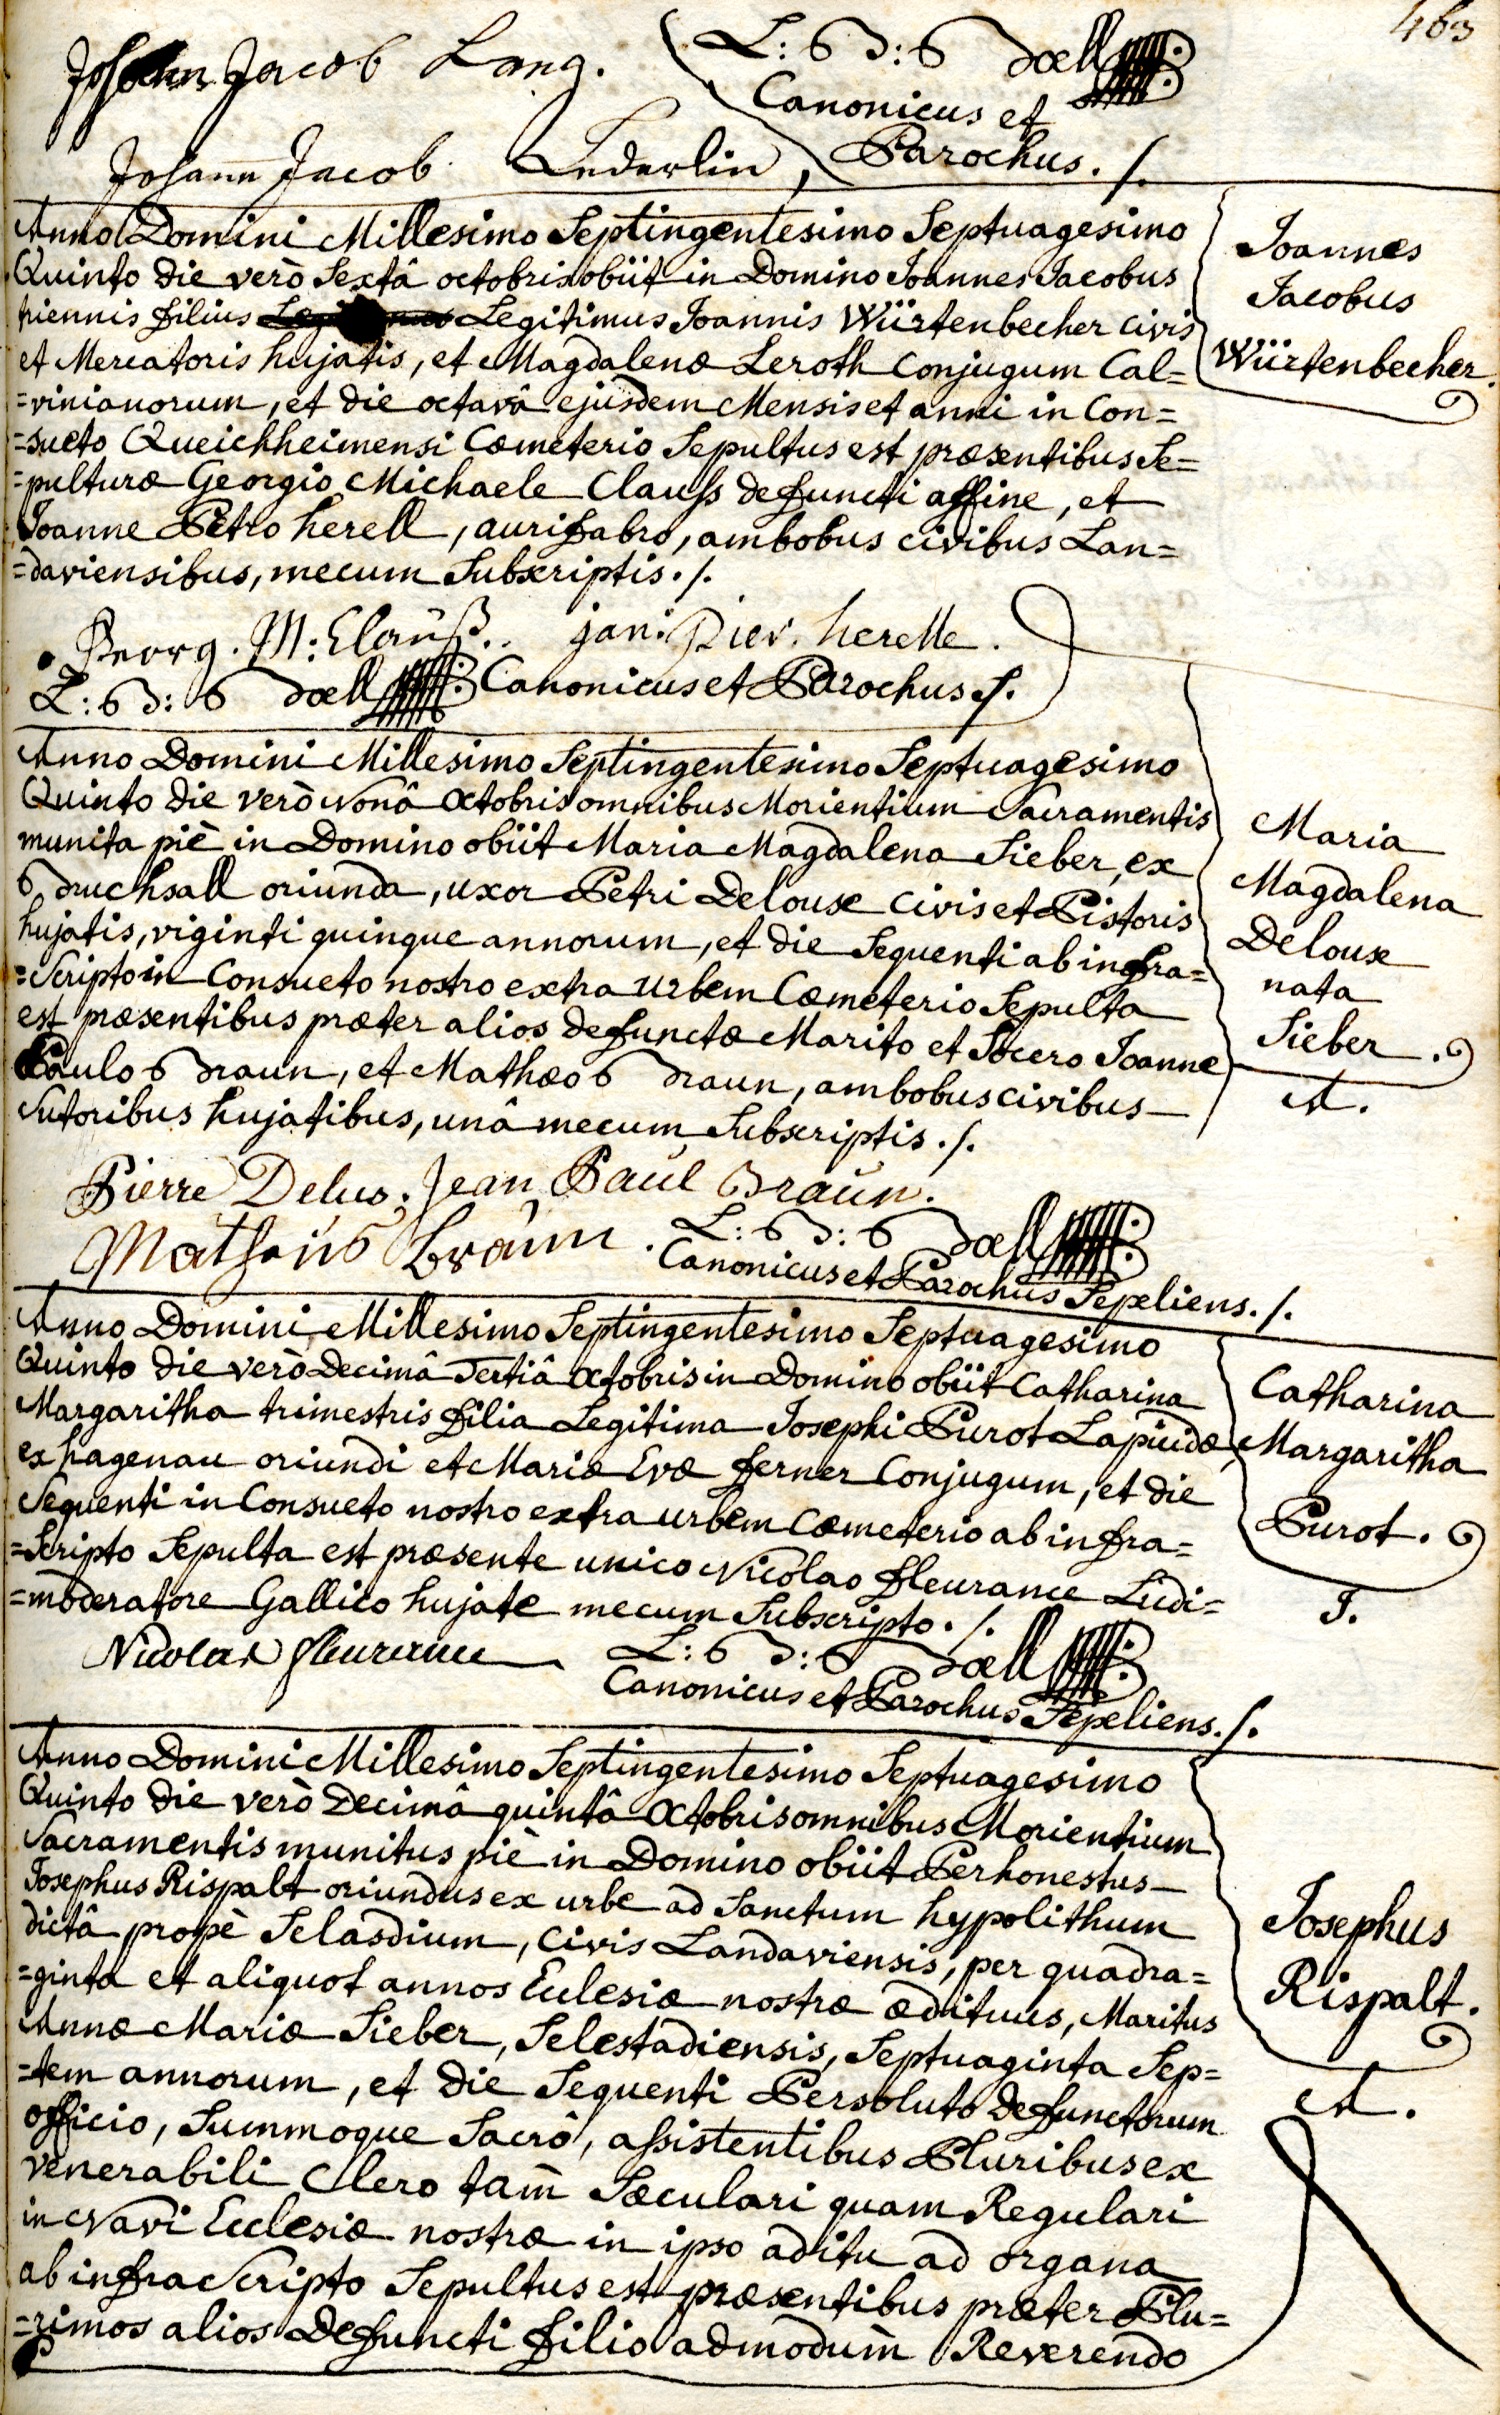 463
Johann Jacob Lang.
L: B D: B doell
Canonicus et
Johann Jacob Lederlin,
Parochus ./.
Anno Domini Millesimo Septingentesimo Septuagesimo
Quinto die verò Sextâ octobris obiit in Domino Joannes Jacobus
triennis filius Legitimus Joannis Würtenbecher civis
et Mercatoris hujatis, et Magdalenæ Leroth Conjugum Cal=
=vinianorum, et die octavâ ejusdem Mensis et anni in Con=
=sueto Queichheimensi Cœmeterio Sepultus est præsentibus Se=
=pulturæ Georgio Michaele Clauss defuncti affine, et
Joanne Petro herell, aurifabro, ambobus civibus Lan=
=daviensibus, mecum Subscriptis ./.
Joannes
Jacobus
Würtenbecher.
Georg. M: Clauß. jan: Pier. herelle.
L: B D: B doell Canonicus et Parochus ./.
Anno Domini Millesimo Septingentesimo Septuagesimo
Quinto die verò Nonâ Octobris omnibus Morientium Sacramentis
munita piè in Domino obiit Maria Magdalena Sieber, ex
Bruchsall oriunda, uxor Petri Delouse civis et Pistoris
hujatis, viginti quinque annorum, et die Sequenti ab infra=
=Scripto in Consueto nostro extra Urbem Cœmeterio Sepulta
est præsentibus præter alios defunctæ Marito et Socero Joanne
Paulo Braun, et Mathæo Braun, ambobus civibus
Sutoribus hujatibus, unâ mecum Subscriptis ./.
Maria
Magdalena
Delouse
nata
Sieber.
A.
Pierre Delus. Jean Paul Braun.
Mathaüs Braun.
L: B D: B doell
Canonicus et Parochus Sepeliens ./.
Anno Domini Millesimo Septingentesimo Septuagesimo
Quinto die verò Decimâ Tertiâ Octobris in Domino obiit Catharina
Margaritha trimestris filia Legitima Josephi Purot Lapicidæ
ex hagenau oriundi et Mariæ Evæ ferner Conjugum, et die
Sequenti in Consueto nostro extra urbem Cœmeterio ab infra=
=Scripto Sepulta est præsente unico Nicolao fleurance Ludi=
=moderatore Gallico hujate mecum Subscripto ./.
Catharina
Margaritha
Purot.
J.
Nicolas fleurance
L: B D: B doell
Canonicus et Parochus Sepeliens ./.
Anno Domini Millesimo Septingentesimo Septuagesimo
Quinto die verò Decimâ quintâ Octobris omnibus Morientium
Sacramentis munitus piè in Domino obiit Perhonestus
Josephus Rispalt oriundus ex urbe ad Sanctum hypolithum
dictâ propè Selasdium, Civis Landaviensis, per quadra=
=ginta et aliquot annos Ecclesiæ nostræ ædituus, Maritus
Annæ Mariæ Sieber, Selestadiensis, Septuaginta Sep=
=tem annorum, et die Sequenti Persoluto Defunctorum
officio, Summoque Sacrô, assistentibus Pluribus ex
venerabili Clero tam Sæculari quam Regulari
in Navi Ecclesiæ nostræ in ipso aditu ad organa
ab infra Scripto Sepultus est præsentibus præter Plu=
=rimos alios Defuncti filio admodum Reverendo
Josephus
Rispalt.
A.